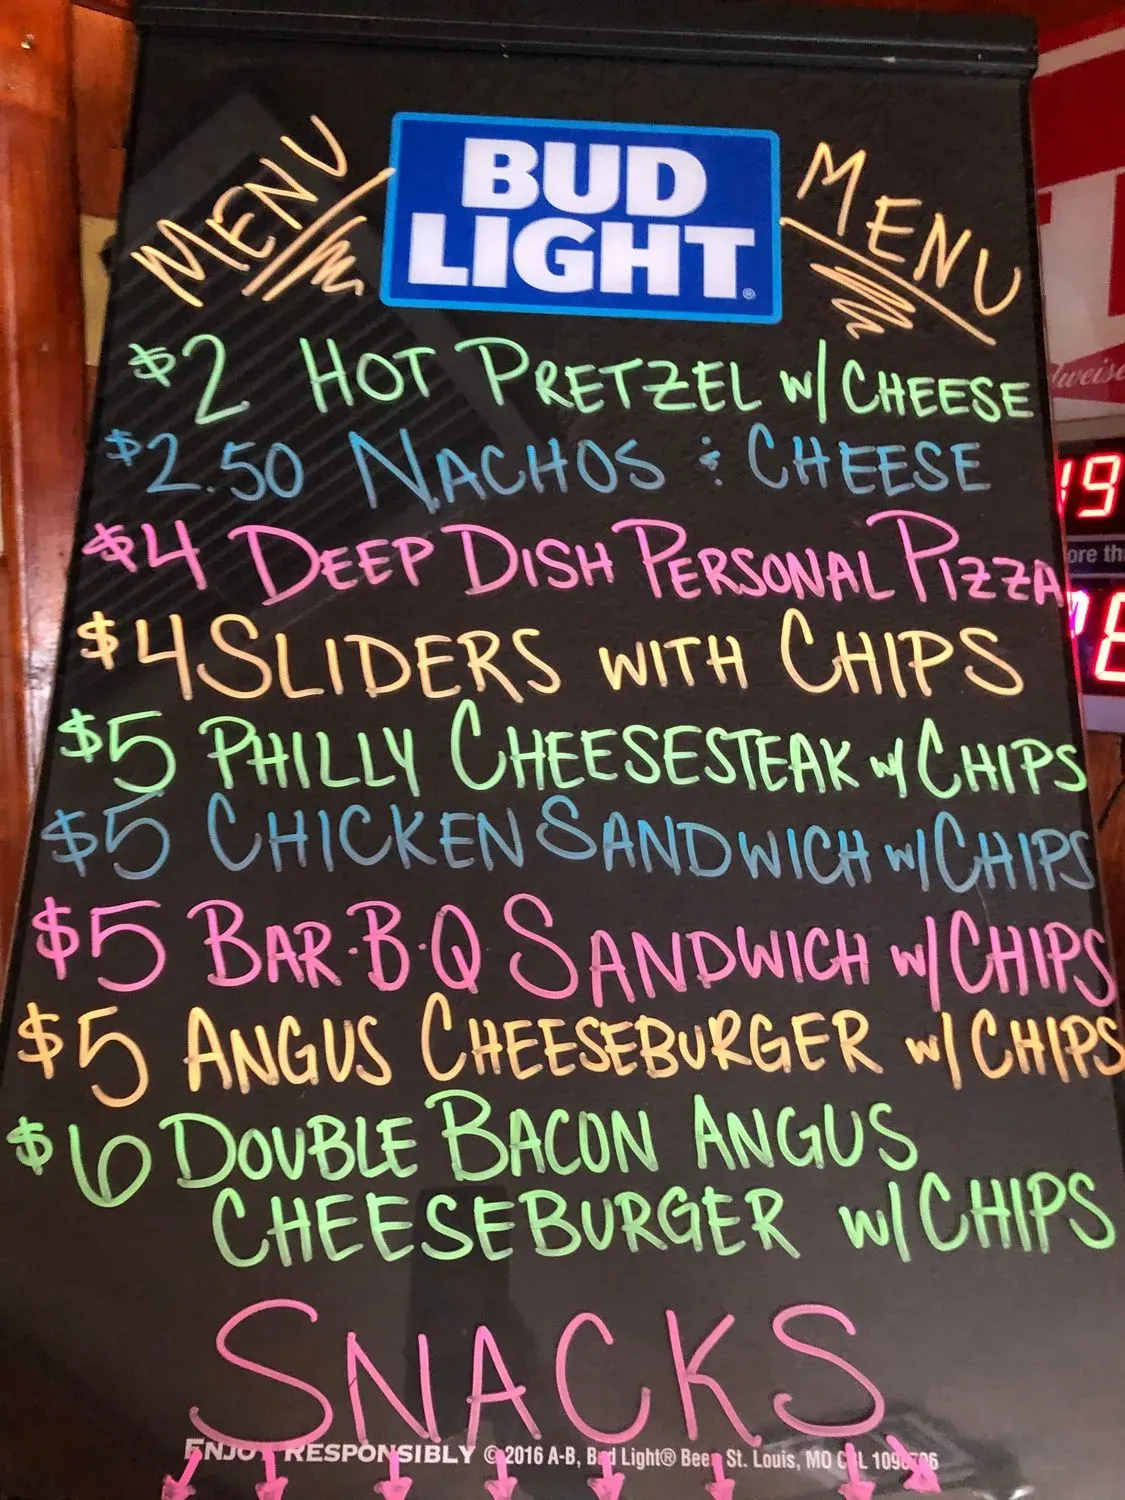 MENU
BUD
LIGHT®
MENU
$2 HOT PRETZEL W/ CHEESE
$2.50 NACHOS & CHEESE
$4 DEEP DISH PERSONAL PIZZA
$4 SLIDERS WITH CHIPS
$5 PHILLY CHEESESTEAK W/ CHIPS
$5 CHICKEN SANDWICH W/ CHIPS
$5 BAR·B·Q SANDWICH W/ CHIPS
$5 ANGUS CHEESEBURGER W/ CHIPS
$6 DOUBLE BACON ANGUS
CHEESEBURGER W/ CHIPS
SNACKS
ENJOY RESPONSIBLY © 2016 A-B, Bud Light® Beer, St. Louis, MO
19
ore th